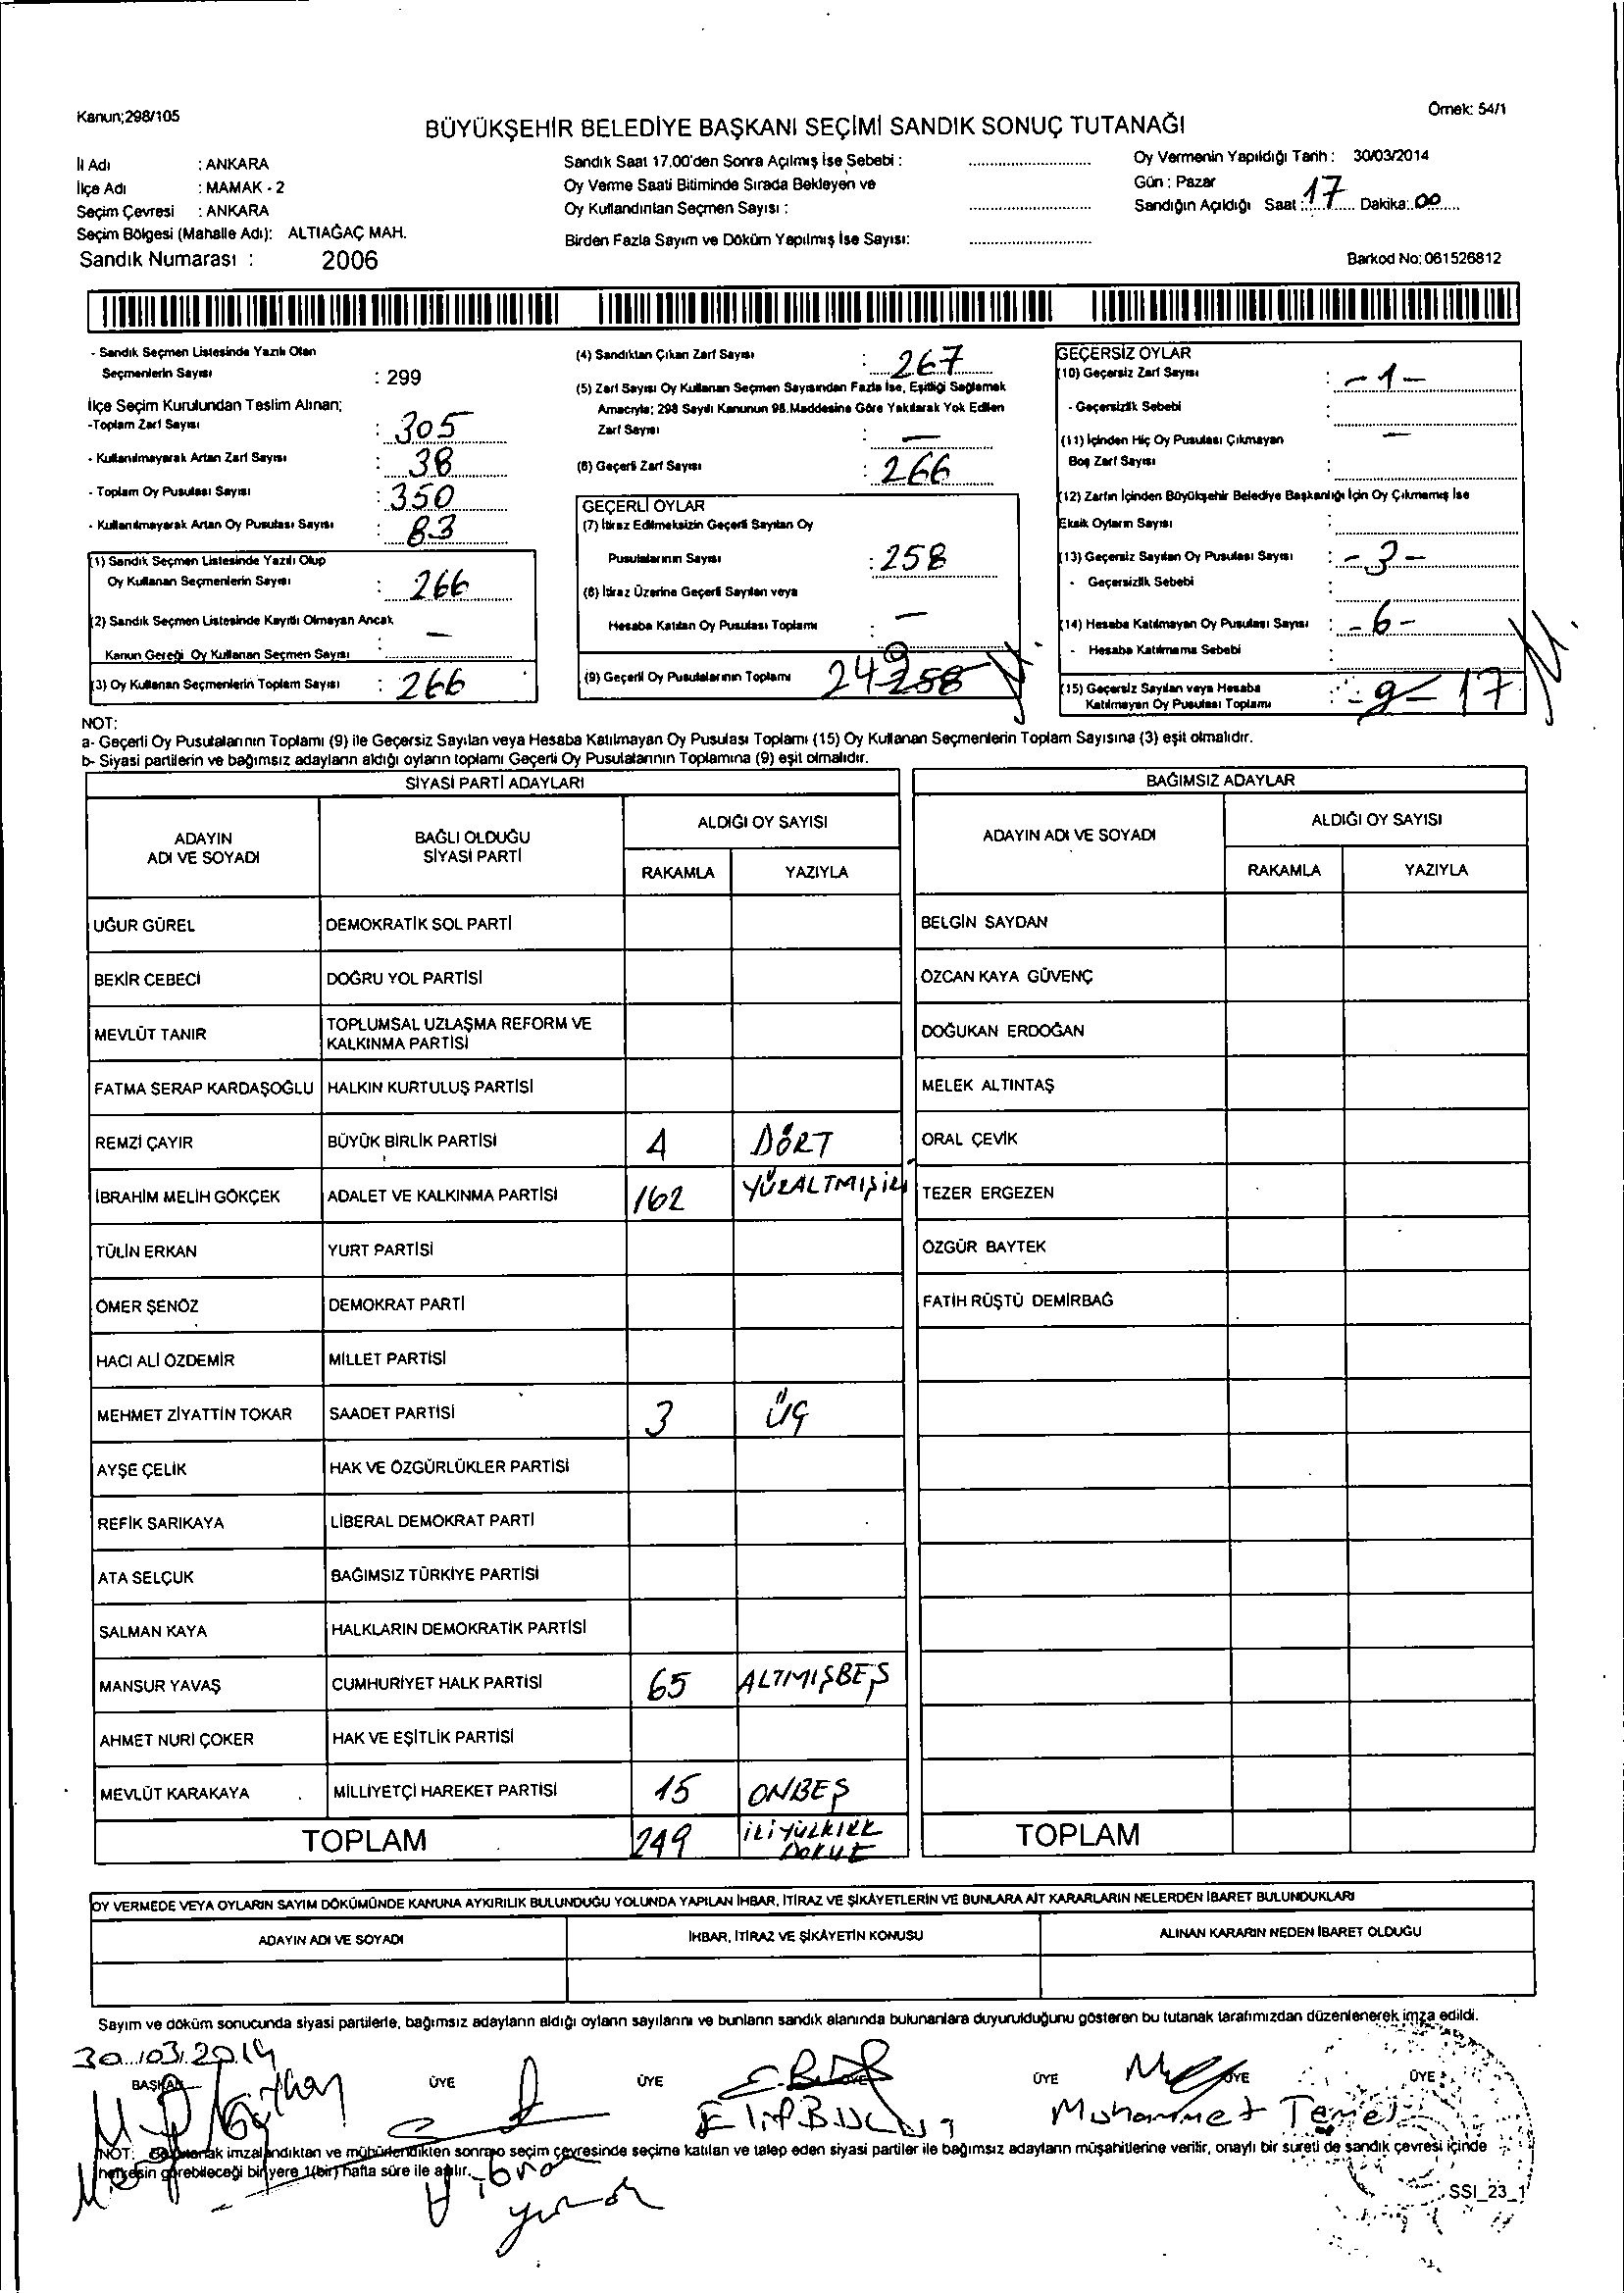 Kanun;298/105
Örnek: 54/1
BÜYÜKŞEHİR BELEDİYE BAŞKANI SEÇİMİ SANDIK SONUÇ TUTANAĞI
İl Adı : ANKARA
İlçe Adı : MAMAK - 2
Seçim Çevresi : ANKARA
Seçim Bölgesi (Mahalle Adı): ALTIAĞAÇ MAH.
Sandık Numarası : 2006
Sandık Saat 17.00'den Sonra Açılmış İse Sebebi :
Oy Verme Saati Bitiminde Sırada Bekleyen ve
Oy Kullandırılan Seçmen Sayısı :
Birden Fazla Sayım ve Döküm Yapılmış İse Sayısı:
Oy Vermenin Yapıldığı Tarih : 30/03/2014
Gün : Pazar
Sandığın Açıldığı Saat : 17 Dakika: 00
Barkod No: 061526812
- Sandık Seçmen Listesinde Yazılı Olan
Seçmenlerin Sayısı : 299
İlçe Seçim Kurulundan Teslim Alınan;
-Toplam Zarf Sayısı : 305
- Kullanılmayarak Artan Zarf Sayısı : 38
- Toplam Oy Pusulası Sayısı : 350
- Kullanılmayarak Artan Oy Pusulası Sayısı : 83
(1) Sandık Seçmen Listesinde Yazılı Olup
Oy Kullanan Seçmenlerin Sayısı : 266
(2) Sandık Seçmen Listesinde Kayıtlı Olmayan Ancak
Kanun Gereği Oy Kullanan Seçmen Sayısı : —
(3) Oy Kullanan Seçmenlerin Toplam Sayısı : 266
(4) Sandıktan Çıkan Zarf Sayısı : 267
(5) Zarf Sayısı Oy Kullanan Seçmen Sayısından Fazla İse, Eşitliği Sağlamak
Amacıyla; 298 Sayılı Kanunun 98.Maddesine Göre Yakılarak Yok Edilen
Zarf Sayısı : —
(6) Geçerli Zarf Sayısı : 266
GEÇERLİ OYLAR
(7) İtiraz Edilmeksizin Geçerli Sayılan Oy
Pusulalarının Sayısı : 258
(8) İtiraz Üzerine Geçerli Sayılan veya
Hesaba Katılan Oy Pusulası Toplamı : —
(9) Geçerli Oy Pusulalarının Toplamı 249 258
GEÇERSİZ OYLAR
(10) Geçersiz Zarf Sayısı : -1-
- Geçersizlik Sebebi :
(11) İçinden Hiç Oy Pusulası Çıkmayan —
Boş Zarf Sayısı :
(12) Zarfın İçinden Büyükşehir Belediye Başkanlığı İçin Oy Çıkmamış İse
Eksik Oyların Sayısı :
(13) Geçersiz Sayılan Oy Pusulası Sayısı : -3-
- Geçersizlik Sebebi :
(14) Hesaba Katılmayan Oy Pusulası Sayısı : -6-
- Hesaba Katılmama Sebebi :
(15) Geçersiz Sayılan veya Hesaba
Katılmayan Oy Pusulası Toplamı : -9- 17
NOT:
a- Geçerli Oy Pusulalarının Toplamı (9) ile Geçersiz Sayılan veya Hesaba Katılmayan Oy Pusulası Toplamı (15) Oy Kullanan Seçmenlerin Toplam Sayısına (3) eşit olmalıdır.
b- Siyasi partilerin ve bağımsız adayların aldığı oyların toplamı Geçerli Oy Pusulalarının Toplamına (9) eşit olmalıdır.
SİYASİ PARTİ ADAYLARI
ADAYIN ADI VE SOYADI
BAĞLI OLDUĞU SİYASİ PARTİ
ALDIĞI OY SAYISI
RAKAMLA YAZIYLA
UĞUR GÜREL DEMOKRATİK SOL PARTİ
BEKİR CEBECİ DOĞRU YOL PARTİSİ
MEVLÜT TANIR TOPLUMSAL UZLAŞMA REFORM VE
KALKINMA PARTİSİ
FATMA SERAP KARDAŞOĞLU HALKIN KURTULUŞ PARTİSİ
REMZİ ÇAYIR BÜYÜK BİRLİK PARTİSİ 4 DÖRT
İBRAHİM MELİH GÖKÇEK ADALET VE KALKINMA PARTİSİ 162 YÜZALTMIŞİKİ
TÜLİN ERKAN YURT PARTİSİ
ÖMER ŞENÖZ DEMOKRAT PARTİ
HACI ALİ ÖZDEMİR MİLLET PARTİSİ
MEHMET ZİYATTİN TOKAR SAADET PARTİSİ 3 ÜÇ
AYŞE ÇELİK HAK VE ÖZGÜRLÜKLER PARTİSİ
REFİK SARIKAYA LİBERAL DEMOKRAT PARTİ
ATA SELÇUK BAĞIMSIZ TÜRKİYE PARTİSİ
SALMAN KAYA HALKLARIN DEMOKRATİK PARTİSİ
MANSUR YAVAŞ CUMHURİYET HALK PARTİSİ 65 ALTMIŞBEŞ
AHMET NURİ ÇOKER HAK VE EŞİTLİK PARTİSİ
MEVLÜT KARAKAYA MİLLİYETÇİ HAREKET PARTİSİ 15 ONBEŞ
TOPLAM 249 İKİYÜZKIRK
DOKUZ
BAĞIMSIZ ADAYLAR
ADAYIN ADI VE SOYADI
ALDIĞI OY SAYISI
RAKAMLA YAZIYLA
BELGİN SAYDAN
ÖZCAN KAYA GÜVENÇ
DOĞUKAN ERDOĞAN
MELEK ALTINTAŞ
ORAL ÇEVİK
TEZER ERGEZEN
ÖZGÜR BAYTEK
FATİH RÜŞTÜ DEMİRBAĞ
TOPLAM
OY VERMEDE VEYA OYLARIN SAYIM DÖKÜMÜNDE KANUNA AYKIRILIK BULUNDUĞU YOLUNDA YAPILAN İHBAR, İTİRAZ VE ŞİKÂYETLERİN VE BUNLARA AİT KARARLARIN NELERDEN İBARET BULUNDUKLARI
ADAYIN ADI VE SOYADI İHBAR, İTİRAZ VE ŞİKÂYETİN KONUSU ALINAN KARARIN NEDEN İBARET OLDUĞU
Sayım ve döküm sonucunda siyasi partilerle, bağımsız adayların aldığı oyların sayılarını ve bunların sandık alanında bulunanlara duyurulduğunu gösteren bu tutanak tarafımızdan düzenlenerek imza edildi.
30.03.2014
BAŞKAN ÜYE ÜYE ÜYE ÜYE ÜYE ÜYE
Muhammet Temel
NOT: Bu tutanak imzalandıktan ve mühürlendikten sonra o seçim çevresinde seçime katılan ve talep eden siyasi partiler ile bağımsız adayların müşahitlerine verilir, onaylı bir sureti de sandık çevresi içinde
herkesin görebileceği bir yere 1(bir) hafta süre ile asılır.
SSI_23_1